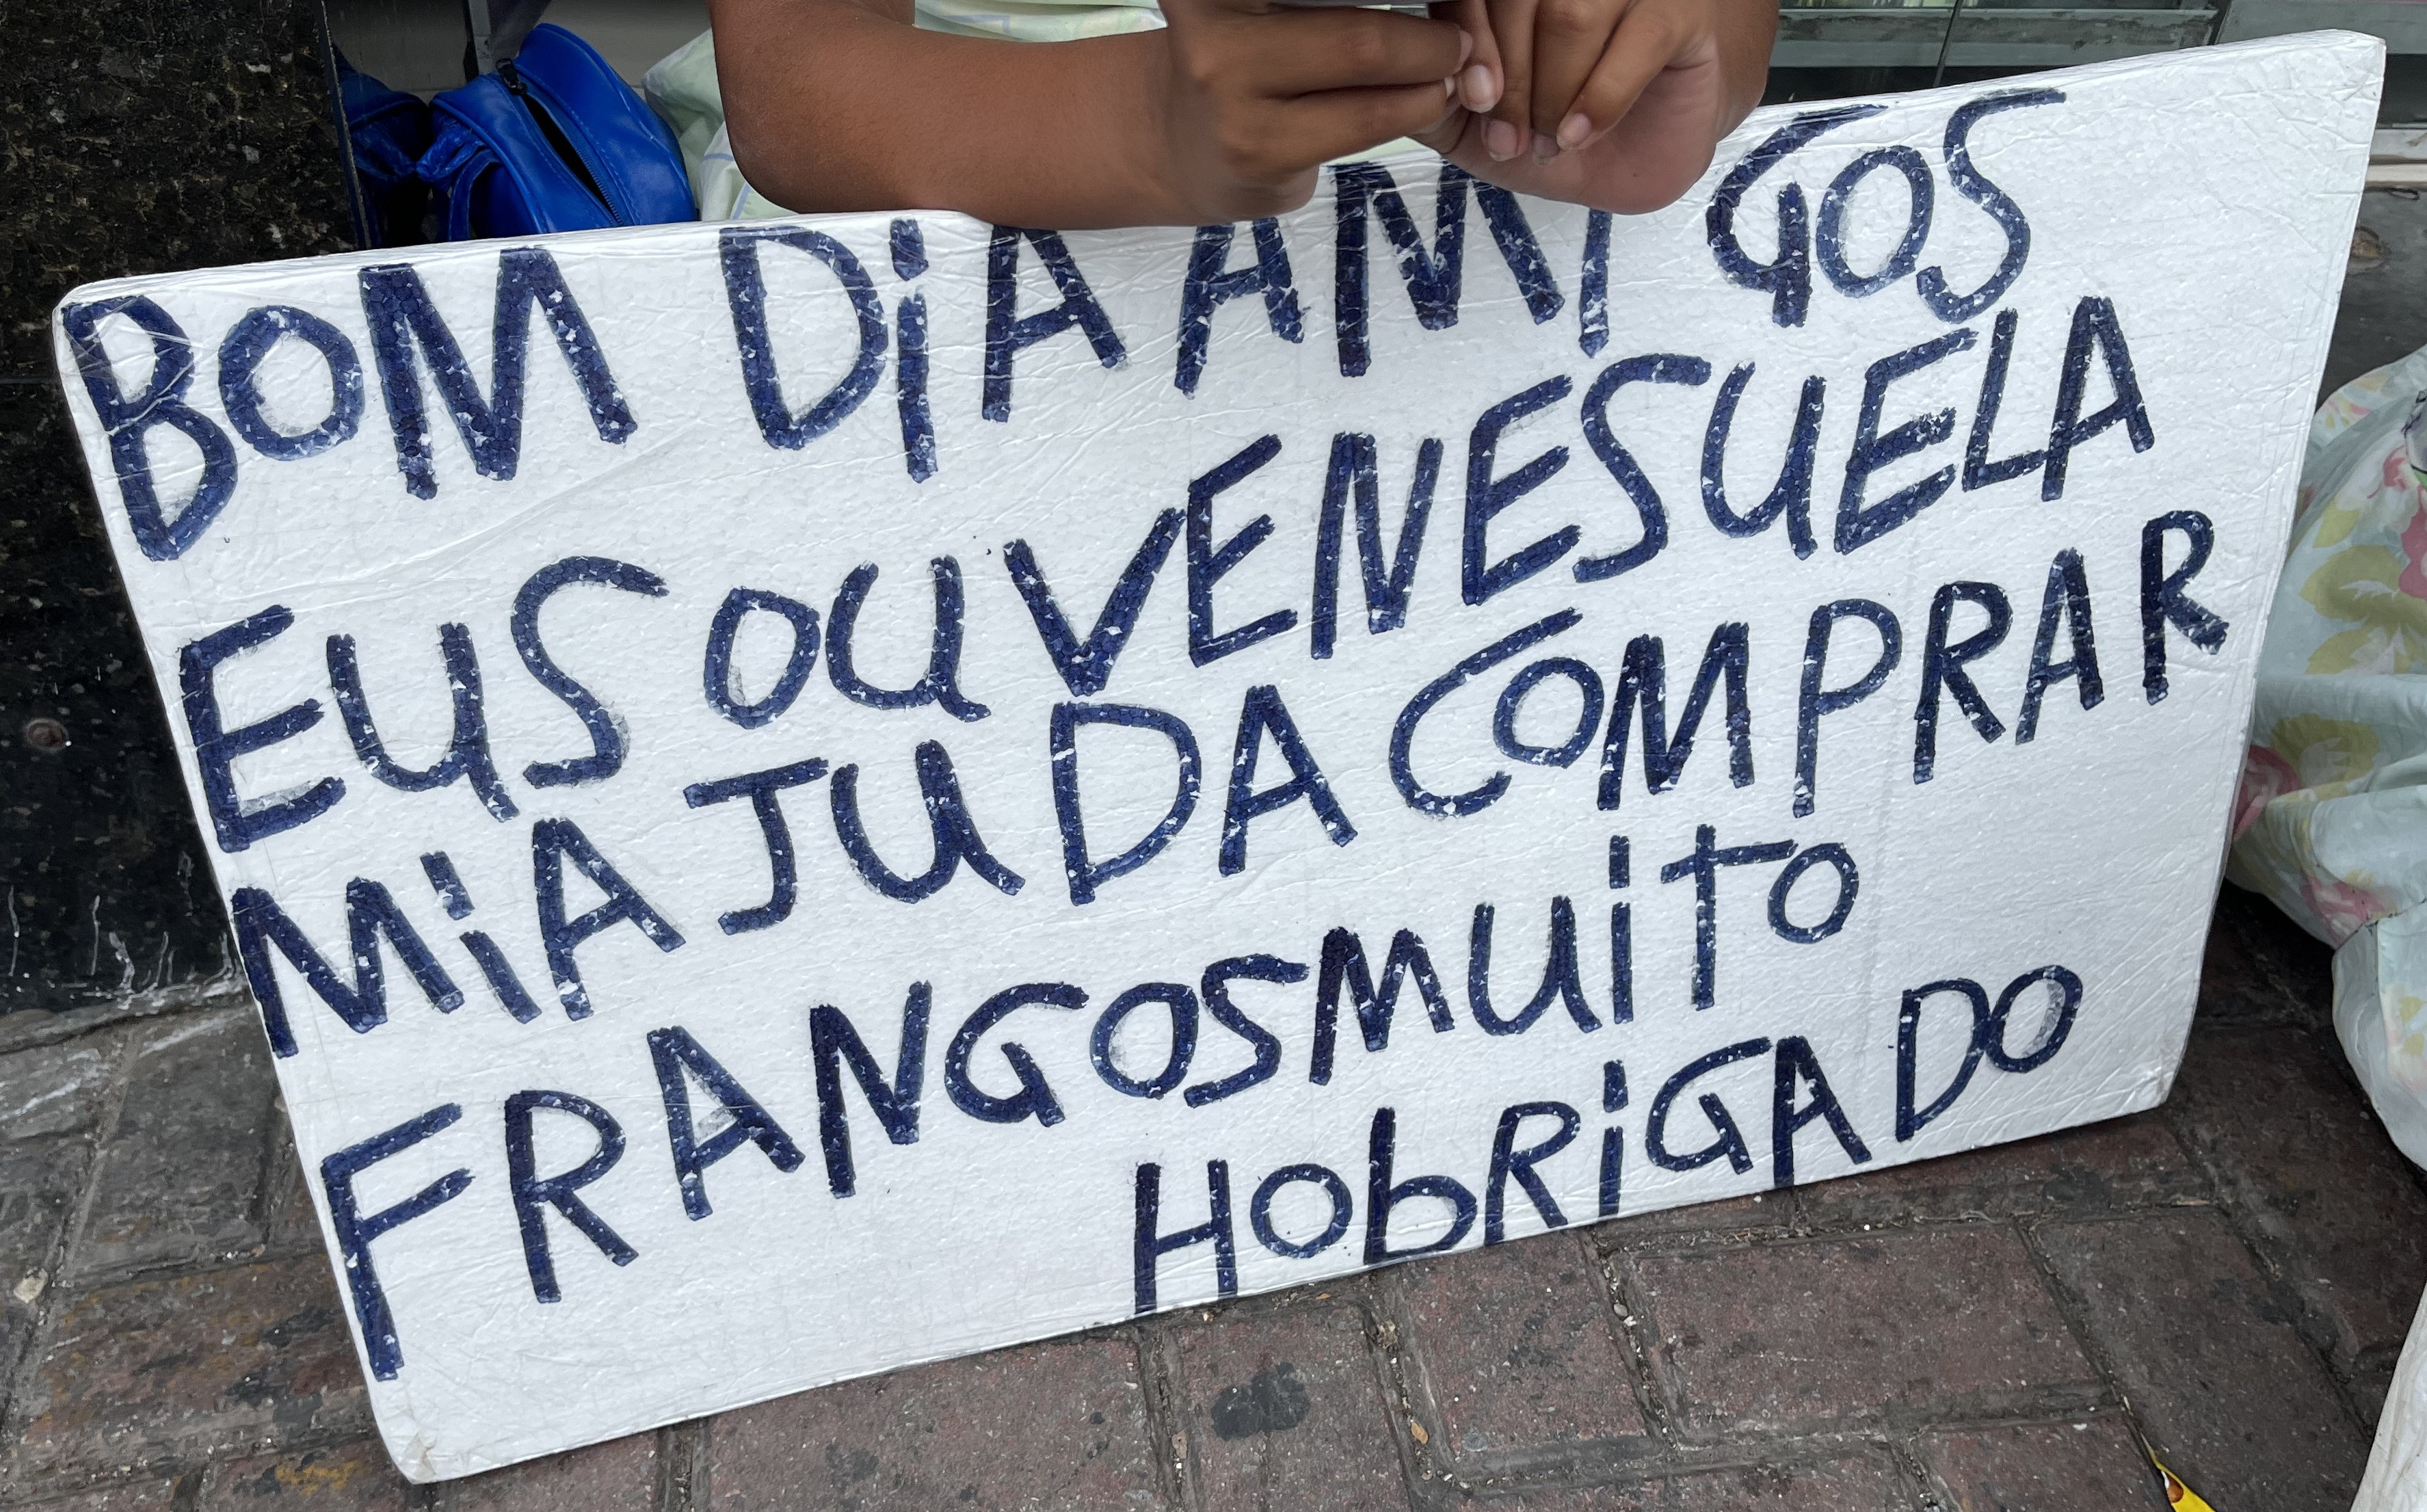 BOM DiA AMiGOS
EU SOU VENESUELA
Mi AJUDA COMPRAR
FRANGOS MUiTO
HObRiGADO